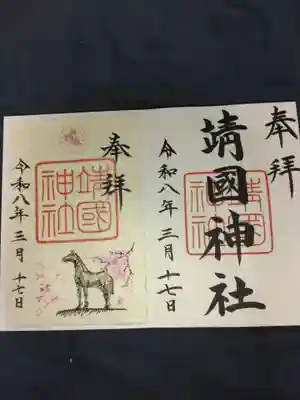 奉拝
靖國神社
靖國
神社
令和八年三月十七日
奉拝
靖國
神社
令和八年三月十七日